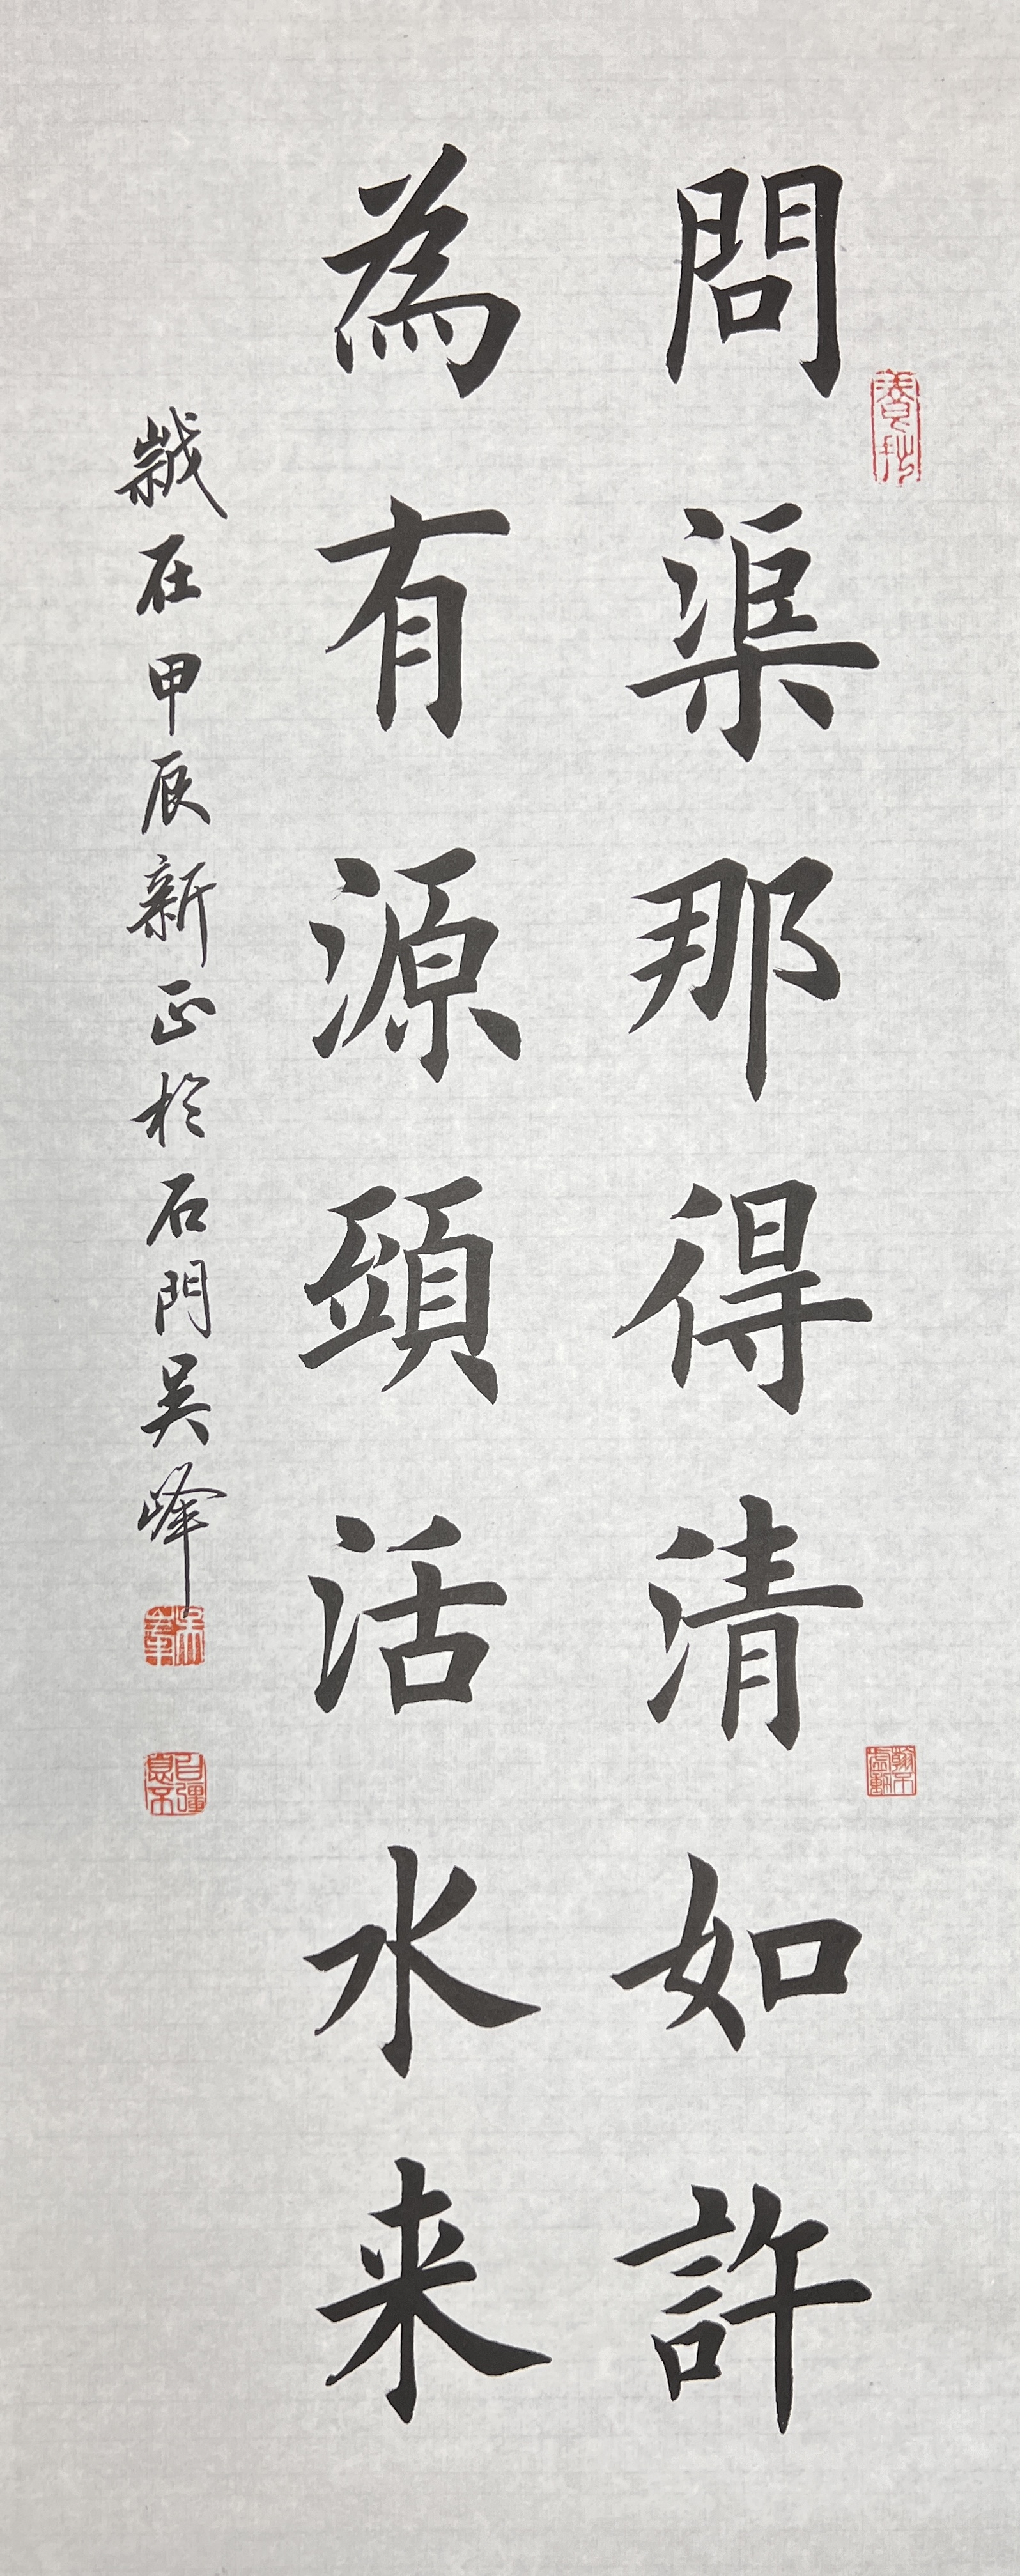 問渠那得清如許
為有源頭活水来
歲在甲辰新正於石門吳峰
自彊不息